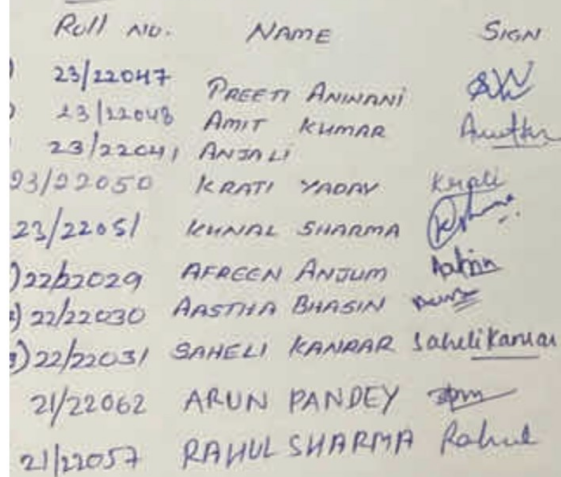 Roll NO. NAME SIGN
23/22047 PREETI ANINANI
23/22048 AMIT KUMAR
23/22041 ANJALI
23/22050 KRATI YADAV Krati
23/22051 KUNAL SHARMA
22/22029 AFREEN ANJUM
22/22030 AASTHA BHASIN
22/22031 SAHELI KANRAR Saheli Kanrar
21/22062 ARUN PANDEY
21/22057 RAHUL SHARMA Rahul